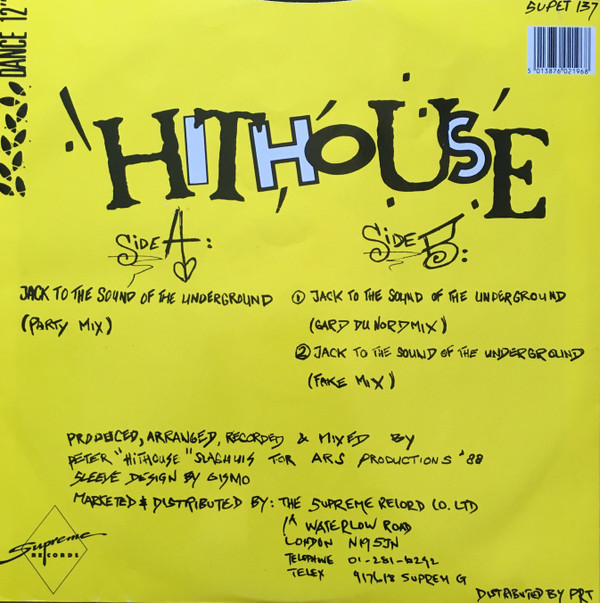 SUPET 137
DANCE 12"
5 013876 021968
HITHOUSE
SIDE A:
JACK TO THE SOUND OF THE UNDERGROUND
(PARTY MIX)
SIDE B:
① JACK TO THE SOUND OF THE UNDERGROUND
(GARD DU NORD MIX)
② JACK TO THE SOUND OF THE UNDERGROUND
(FAKE MIX)
PRODUCED, ARRANGED, RECORDED & MIXED BY
PETER "HITHOUSE" SLAGHUIS FOR ARS PRODUCTIONS '88
SLEEVE DESIGN BY GISMO
MARKETED & DISTRIBUTED BY: THE SUPREME RECORD CO. LTD
WATERLOW ROAD
LONDON N19 5NJ
TELEPHONE 01-281-6292
TELEX 917618 SUPREM G
Supreme
RECORDS
DISTRIBUTED BY PRT